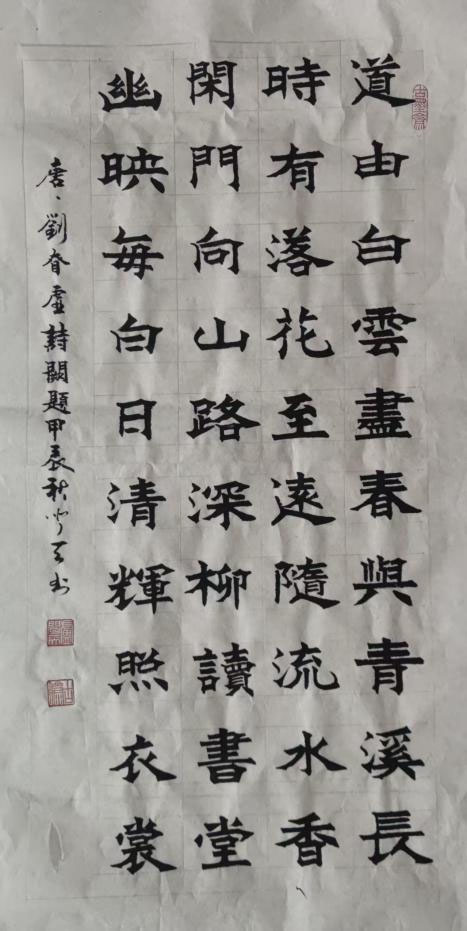 道由白雲盡春與青溪長
時有落花至遠隨流水香
閑門向山路深柳讀書堂
幽映每白日清輝照衣裳
唐、劉眘虛詩闕題甲辰秋